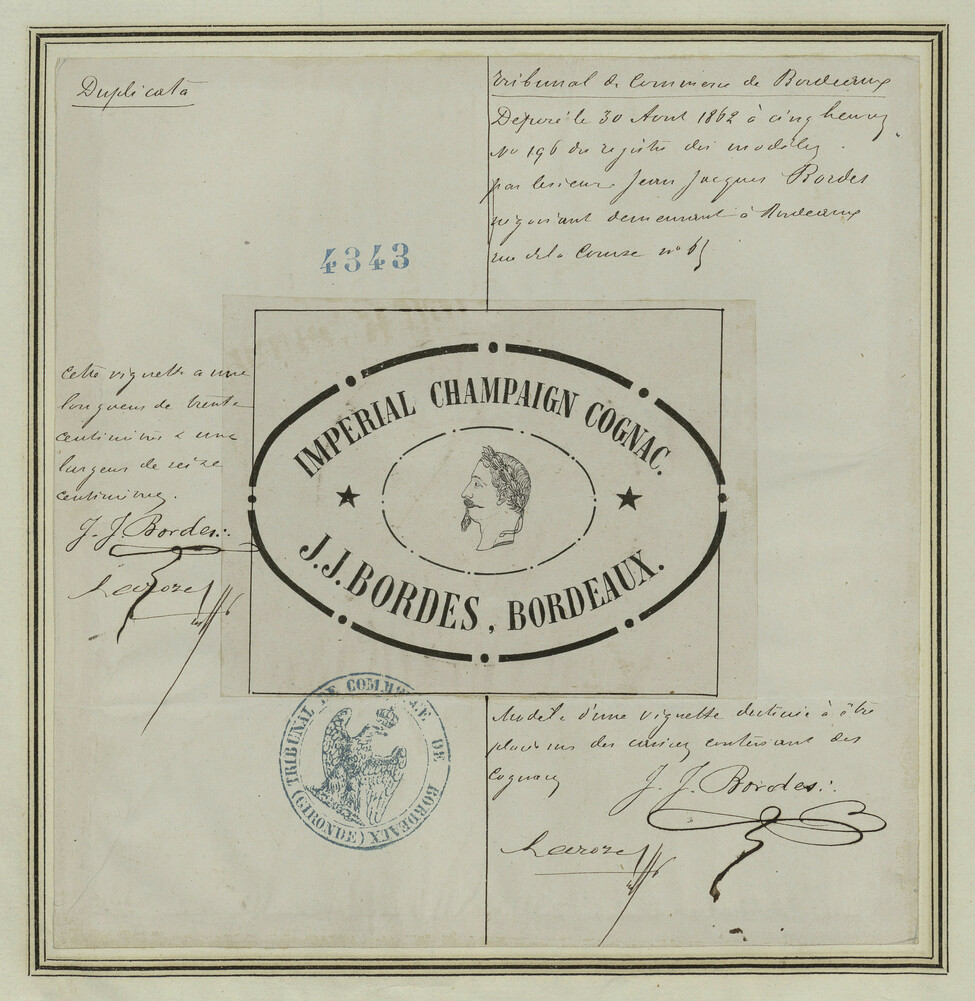 Duplicata
Tribunal de Commerce de Bordeaux
Déposé le 30 Aout 1862 à cinq heures
No 196 du registre des modèles
par le sieur Jean Jacques Bordes
négociant demeurant à Bordeaux
rue de la Course no
4343
Cette vignette a une
longueur de trente
centimètres & une
largeur de seize
centimètres.
J. J. Bordes
Laroze
IMPERIAL CHAMPAIGN COGNAC.
J.J. BORDES, BORDEAUX.
TRIBUNAL DE COMMERCE DE BORDEAUX
(GIRONDE)
Modèle d'une vignette destinée à être
placée sur des caisses contenant des
Cognacs
J. J. Bordes
Laroze